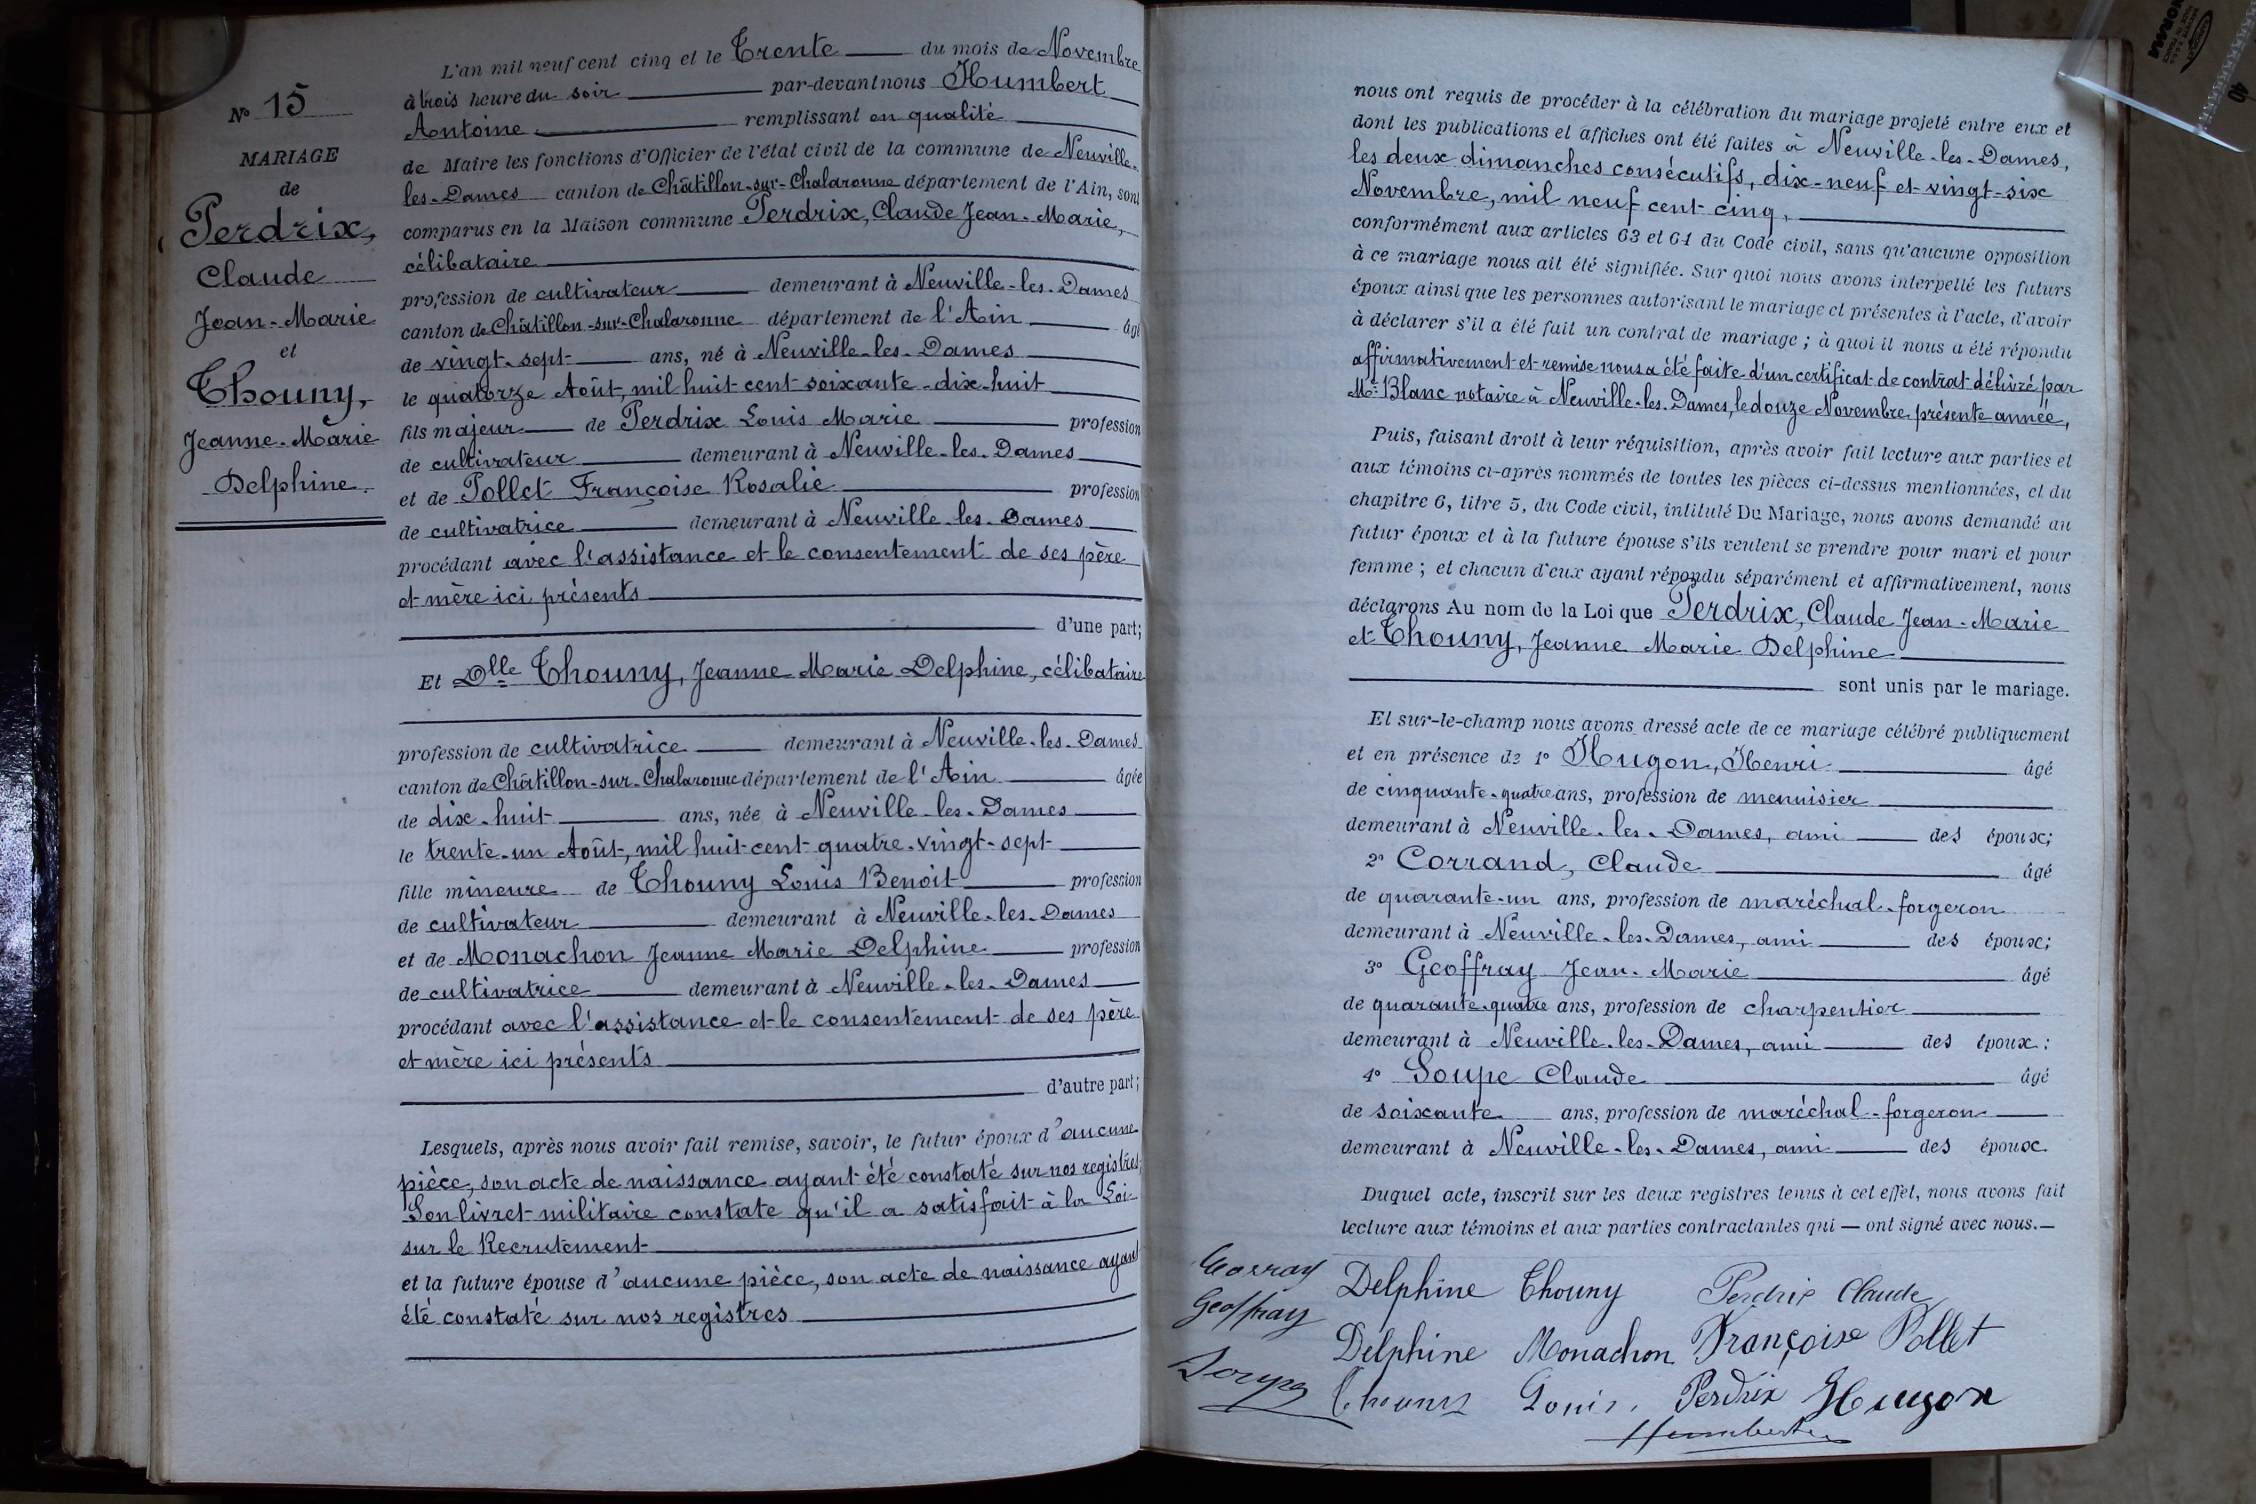 N° 15
MARIAGE
de
Perdrix,
Claude
Jean-Marie
et
Thouny,
Jeanne-Marie
Delphine.
L'an mil neuf cent cinq et le Trente du mois de Novembre
à trois heure du soir par-devant nous Humbert
Antoine remplissant en qualité
de Maire les fonctions d'Officier de l'état civil de la commune de Neuville-
les-Dames canton de Châtillon-sur-Chalaronne département de l'Ain, sont
comparus en la Maison commune Perdrix, Claude Jean-Marie,
célibataire
profession de cultivateur demeurant à Neuville-les-Dames
canton de Châtillon-sur-Chalaronne département de l'Ain âgé
de vingt-sept ans, né à Neuville-les-Dames
le quatorze Août, mil huit cent soixante-dix-huit
fils majeur de Perdrix Louis Marie profession
de cultivateur demeurant à Neuville-les-Dames
et de Pollet Françoise Rosalie profession
de cultivatrice demeurant à Neuville-les-Dames
procédant avec l'assistance et le consentement de ses père
et mère ici présents
d'une part;
Et Dlle Thouny, Jeanne Marie Delphine, célibataire
profession de cultivatrice demeurant à Neuville-les-Dames
canton de Châtillon-sur-Chalaronne département de l'Ain âgée
de dix-huit ans, née à Neuville-les-Dames
le trente-un Août, mil huit cent quatre-vingt-sept
fille mineure de Thouny Louis Benoit profession
de cultivateur demeurant à Neuville-les-Dames
et de Monachon Jeanne Marie Delphine profession
de cultivatrice demeurant à Neuville-les-Dames
procédant avec l'assistance et le consentement de ses père
et mère ici présents
d'autre part;
Lesquels, après nous avoir fait remise, savoir, le futur époux d'aucune
pièce, son acte de naissance ayant été constaté sur nos registres
Son livret militaire constate qu'il a satisfait à la Loi
sur le Recrutement
et la future épouse d'aucune pièce, son acte de naissance ayant
été constaté sur nos registres
nous ont requis de procéder à la célébration du mariage projeté entre eux et
dont les publications et affiches ont été faites à Neuville-les-Dames,
les deux dimanches consécutifs, dix-neuf et vingt-six
Novembre, mil neuf cent cinq,
conformément aux articles 63 et 64 du Code civil, sans qu'aucune opposition
à ce mariage nous ait été signifiée. Sur quoi nous avons interpellé les futurs
époux ainsi que les personnes autorisant le mariage et présentes à l'acte, d'avoir
à déclarer s'il a été fait un contrat de mariage; à quoi il nous a été répondu
affirmativement et remise nous a été faite d'un certificat de contrat délivré par
Me Blanc notaire à Neuville-les-Dames, le douze Novembre présente année,
Puis, faisant droit à leur réquisition, après avoir fait lecture aux parties et
aux témoins ci-après nommés de toutes les pièces ci-dessus mentionnées, et du
chapitre 6, titre 5, du Code civil, intitulé Du Mariage, nous avons demandé au
futur époux et à la future épouse s'ils veulent se prendre pour mari et pour
femme; et chacun d'eux ayant répondu séparément et affirmativement, nous
déclarons Au nom de la Loi que Perdrix, Claude Jean-Marie
et Thouny, Jeanne Marie Delphine
sont unis par le mariage.
Et sur-le-champ nous avons dressé acte de ce mariage célébré publiquement
et en présence de 1° Hugon, Henri âgé
de cinquante-quatre ans, profession de menuisier
demeurant à Neuville-les-Dames, ami des époux;
2° Corrand, Claude âgé
de quarante-un ans, profession de maréchal-forgeron
demeurant à Neuville-les-Dames, ami des époux;
3° Geoffray Jean-Marie âgé
de quarante-quatre ans, profession de charpentier
demeurant à Neuville-les-Dames, ami des époux;
4° Soupe Claude âgé
de soixante ans, profession de maréchal-forgeron
demeurant à Neuville-les-Dames, ami des époux.
Duquel acte, inscrit sur les deux registres tenus à cet effet, nous avons fait
lecture aux témoins et aux parties contractantes qui — ont signé avec nous.—
Delphine Thouny Perdrix Claude
Geoffray
Delphine Monachon Françoise Pollet
Thouny Louis. Perdrix Hugon
Humbert